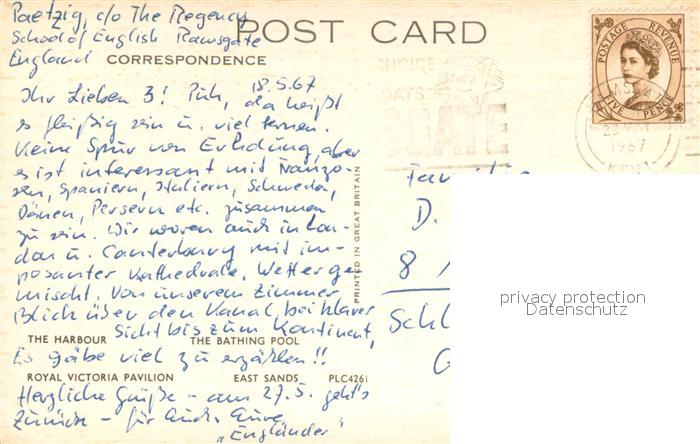 Paetzig, c/o The Regency
School of English Ramsgate
England
POST CARD
CORRESPONDENCE
POSTAGE REVENUE
FIVE PENCE
CHOICE
DAYS
GATE
MAY
1967
KENT
18.5.67
Ihr Lieben 3! Puh, da heißt
es fleißig sein u. viel lernen.
Keine Spur von Erholung, aber
es ist interessant mit Franzo-
sen, Spaniern, Italiern, Schweden,
Dänen, Persern etc. zusammen
zu sein. Wir waren auch in Lon-
don u. Canterbury mit im-
posanter Kathedrale. Wetter ge
mischt. Von unserem Zimmer
Blick über den Kanal, bei klarer
Sicht bis zum Kontinent,
THE HARBOUR THE BATHING POOL
Es gäbe viel zu erzählen!!
ROYAL VICTORIA PAVILION EAST SANDS PLC4261
Herzliche Grüße – am 27.5. geht's
zurück – für auch. Eure
"Engländer"
PRINTED IN GREAT BRITAIN
Familie
D.
8
Schl
G
privacy protection
Datenschutz